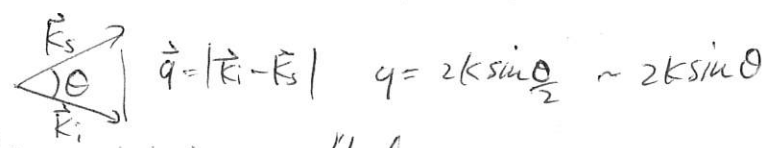 k⃗s
θ q⃗ = |k⃗i - k⃗s| q = 2k sin θ/2 ~ 2k sin θ
k⃗i